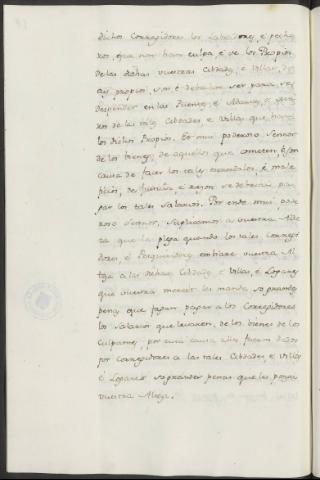 dichos Corregidores los Labradores, é peche-
ros, que non han culpa é de los Propios
de las dichas vuestras Cibdades, é Villas, do
ay propios, que debian ser para
despender en las Puentes, é Muros, é
de las tales Cibdades é Villas que han
los dichos Propios. Et mui poderoso Sennor
de los bienes, de aquellos que cometen, é son
causa de facer los tales escandalos, é male-
ficios, de justicia, é razon se deberian pa-
gar los tales salarios. Por ende mui pode-
roso Sennor, suplicamos a vuestra Alte-
za que le plega quando los tales Corregi-
dores, é Pesquisidores embiare vuestra Al-
teza a las dichas Cibdades, é Villas, é Logares
que vuestra merced les mande, so grandes
penas, que fagan pagar a los Corregidores
los salarios que levaren, de los bienes de los
culpantes, por cuia causa ellos fueren dados
por Corregidores a las tales Cibdades, é Villas
é Logares so grandes penas que les ponga
vuestra Alteza.